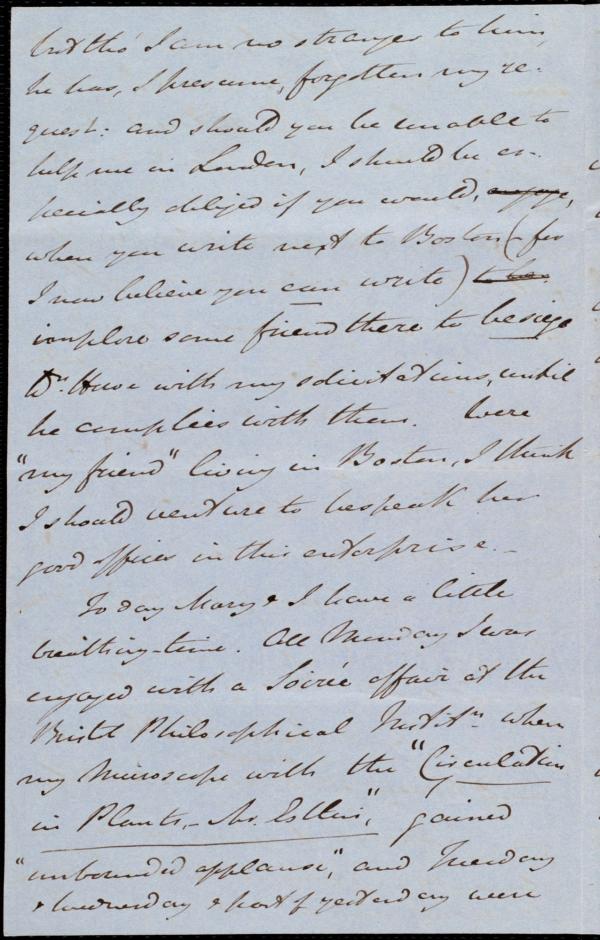 but tho' I am no stranger to him,
he has, I presume, forgotten my re-
quest: and should you be unable to
help me in London, I should be es-
pecially obliged if you would, engage,
when you write next to Boston (for
I now believe you can write) to
implore some friend there to besiege
Dr. Howe with my solicitations, until
he complies with them. Were
"my friend" living in Boston, I think
I should venture to bespeak her
good offices in this enterprise.-
To day Mary & I have a little
breathing-time. All Monday I was
engaged with a Soirée affair at the
Bristol Philosophical Instit.n when
my Microscope with the "Circulation
in Plants,- Mr. Estlin," gained
"unbounded applause", and Tuesday
& Wednesday & part of yesterday were